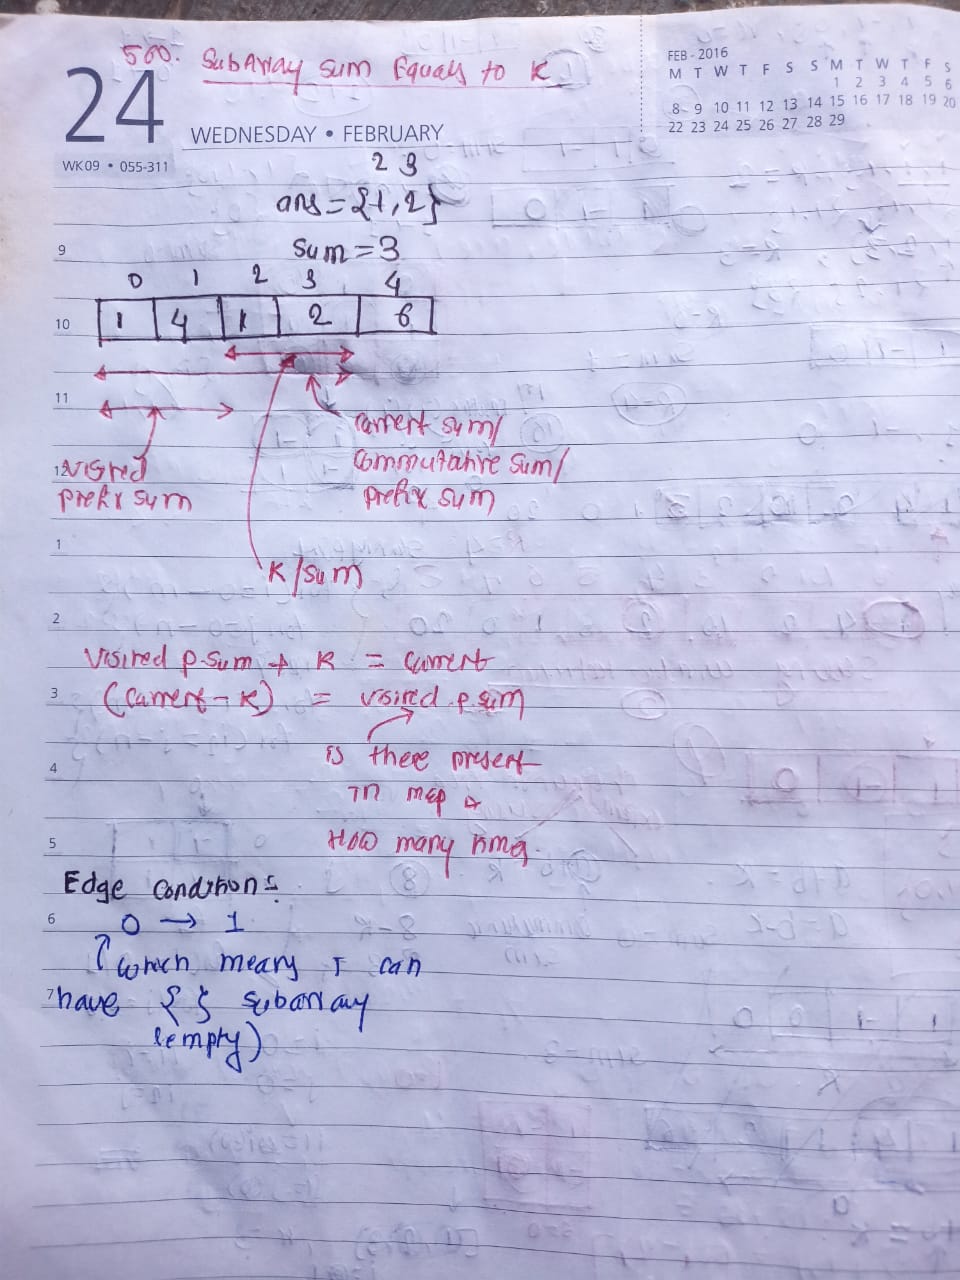 560. Subarray sum Equals to K
24
WEDNESDAY • FEBRUARY
WK09 • 055-311
FEB - 2016
M T W T F S S M T W T F S
1 2 3 4 5 6
8 9 10 11 12 13 14 15 16 17 18 19 20
22 23 24 25 26 27 28 29
2 3
ans = {1, 2}
9
sum = 3
0 1 2 3 4
10
1 4 1 2 6
11
current sum/
commutative sum/
prefix sum
12
visited
prefix sum
1
K/sum
2
visited p.sum + K = current
3
(current - K) = visited p.sum
is there present
4
in map &
How many time
5
Edge conditions
6
0 → 1
which means I can
7
have { } subarray
(empty)